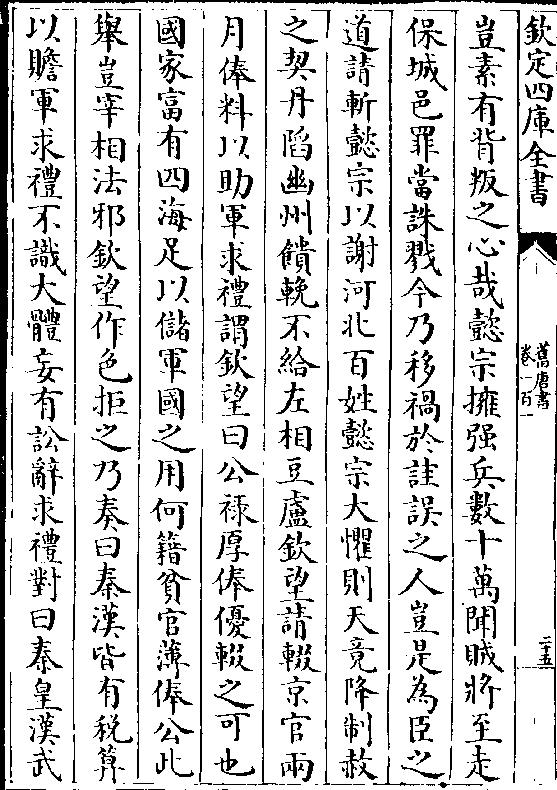 欽定四庫全書
舊唐書
卷一百一
二十五
豈素有背叛之心哉懿宗擁强兵數十萬聞賊將至走
保城邑罪當誅戮今乃移禍於詿誤之人豈是為臣之
道請斬懿宗以謝河北百姓懿宗大懼則天竟降制赦
之契丹陷幽州饋輓不給左相豆盧欽望請輟京官兩
月俸料以助軍求禮謂欽望曰公祿厚俸優輟之可也
國家富有四海足以儲軍國之用何籍貧官薄俸公此
舉豈宰相法邪欽望作色拒之乃奏曰秦漢皆有税算
以贍軍求禮不識大體妄有訟辭求禮對曰秦皇漢武